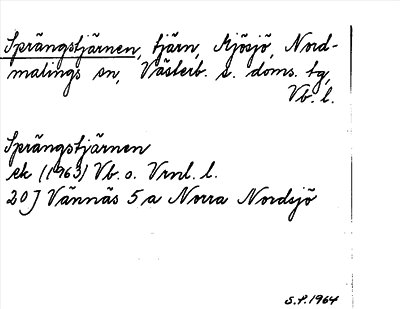 Sprängstjärnen, tjärn, Mjösjö, Nord-
malings sn, Västerb. s. doms. tg,
Vb. l.
Sprängstjärnen
ek (1963) Vb. o. Vrml. l.
20J Vännäs 5 a Norra Nordsjö
S.F. 1964